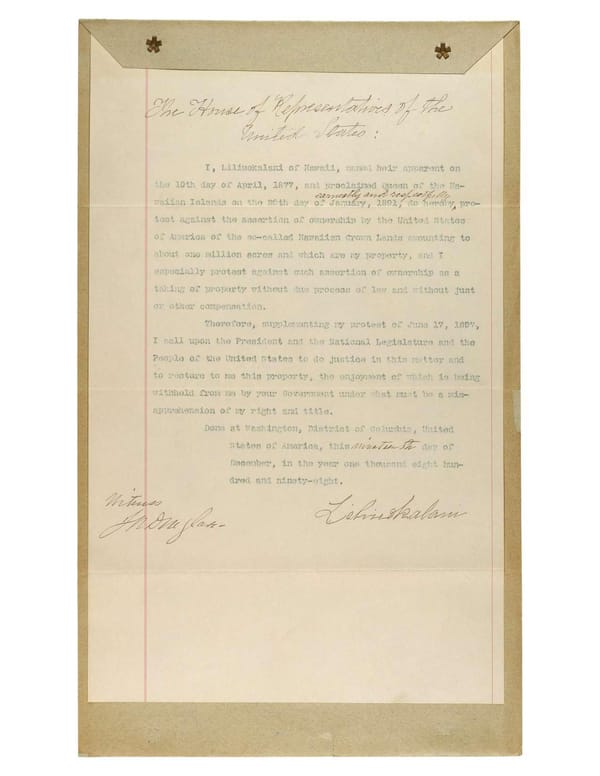 The House of Representatives of the
United States:
I, Liliuokalani of Hawaii, named heir apparent on
the 10th day of April, 1877, and proclaimed Queen of the Ha-
earnestly and respectfully
waiian Islands on the 29th day of January, 1891, do hereby pro-
test against the assertion of ownership by the United States
of America of the so-called Hawaiian Crown Lands amounting to
about one million acres and which are my property, and I
especially protest against such assertion of ownership as a
taking of property without due process of law and without just
or other compensation.
Therefore, supplementing my protest of June 17, 1897,
I call upon the President and the National Legislature and the
People of the United States to do justice in this matter and
to restore to me this property, the enjoyment of which is being
withheld from me by your Government under what must be a mis-
apprehension of my right and title.
Done at Washington, District of Columbia, United
States of America, this nineteenth day of
December, in the year one thousand eight hun-
dred and ninety-eight.
Witness
Liliuokalani